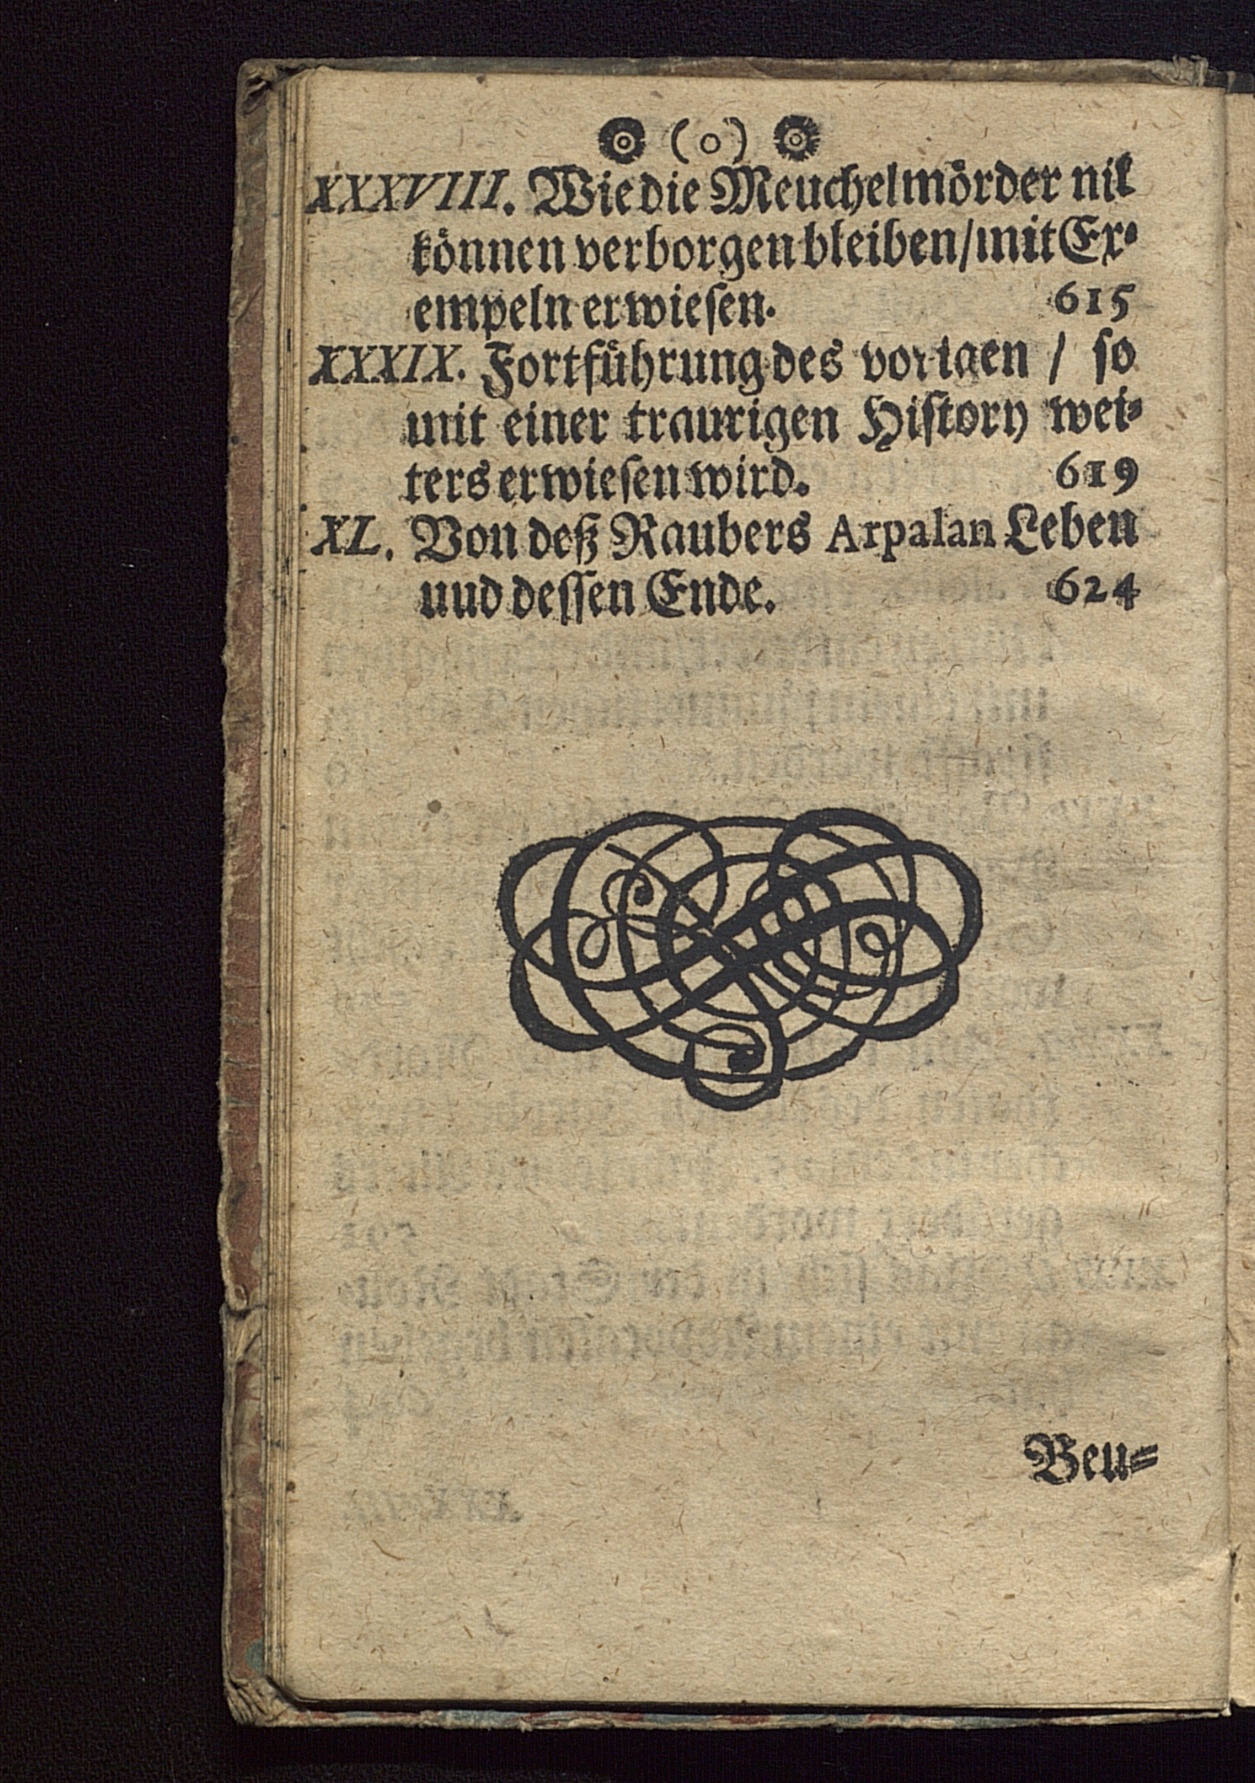 (o)
XXXVIII. Wie die Meuchelmörder nit
können verborgen bleiben/mit Ex-
empeln erwiesen. 615
XXXIX. Fortführung des vorigen / so
mit einer traurigen History wei-
ters erwiesen wird. 619
XL. Von deß Raubers Arpalan Leben
uud dessen Ende. 624
Beu-